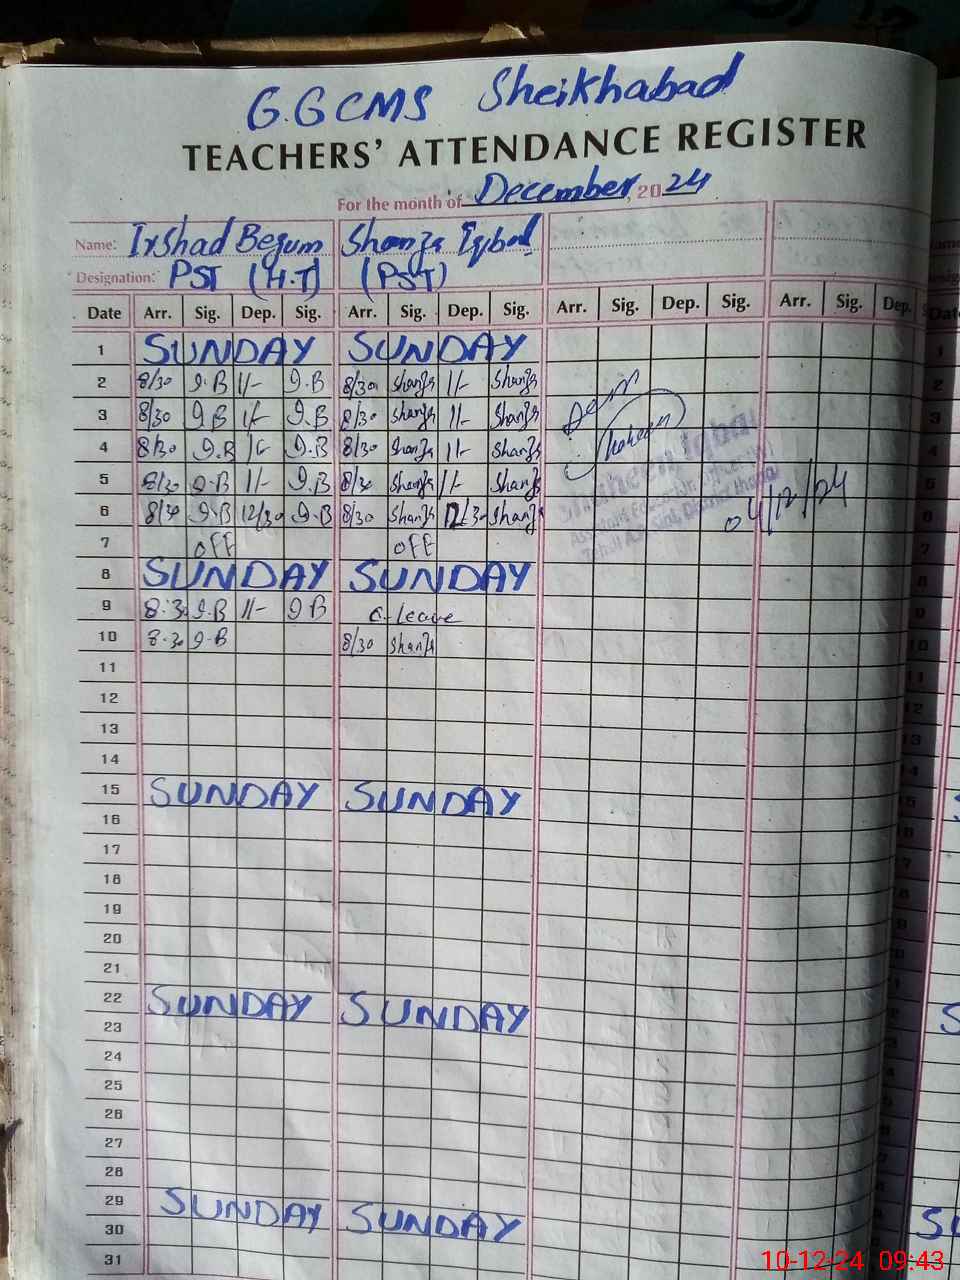 G.G CMS Sheikhabad
TEACHERS' ATTENDANCE REGISTER
For the month of December, 2024
Name: Irshad Begum Shanza Iqbal
Designation: PST (H.T) (PST)
Date Arr. Sig. Dep. Sig. Arr. Sig. Dep. Sig. Arr. Sig. Dep. Sig. Arr. Sig. Dep.
1 SUNDAY SUNDAY
2 8/30 I.B 1/- I.B 8/30 Shanza 1/- Shanza
3 8/30 I.B 1/- I.B 8/30 Shanza 1/- Shanza
4 8/30 I.B 1/- I.B 8/30 Shanza 1/- Shanza
5 8/30 I.B 1/- I.B 8/30 Shanza 1/- Shanza
6 8/30 I.B 12/30 I.B 8/30 Shanza 12/30 Shanza 04/12/24
7 OFF OFF
8 SUNDAY SUNDAY
9 8:30 I.B 1/- I.B C-Leave
10 8:30 I.B 8/30 Shanza
11
12
13
14
15 SUNDAY SUNDAY
16
17
18
19
20
21
22 SUNDAY SUNDAY
23
24
25
26
27
28
29 SUNDAY SUNDAY
30
31
10-12-24 09:43